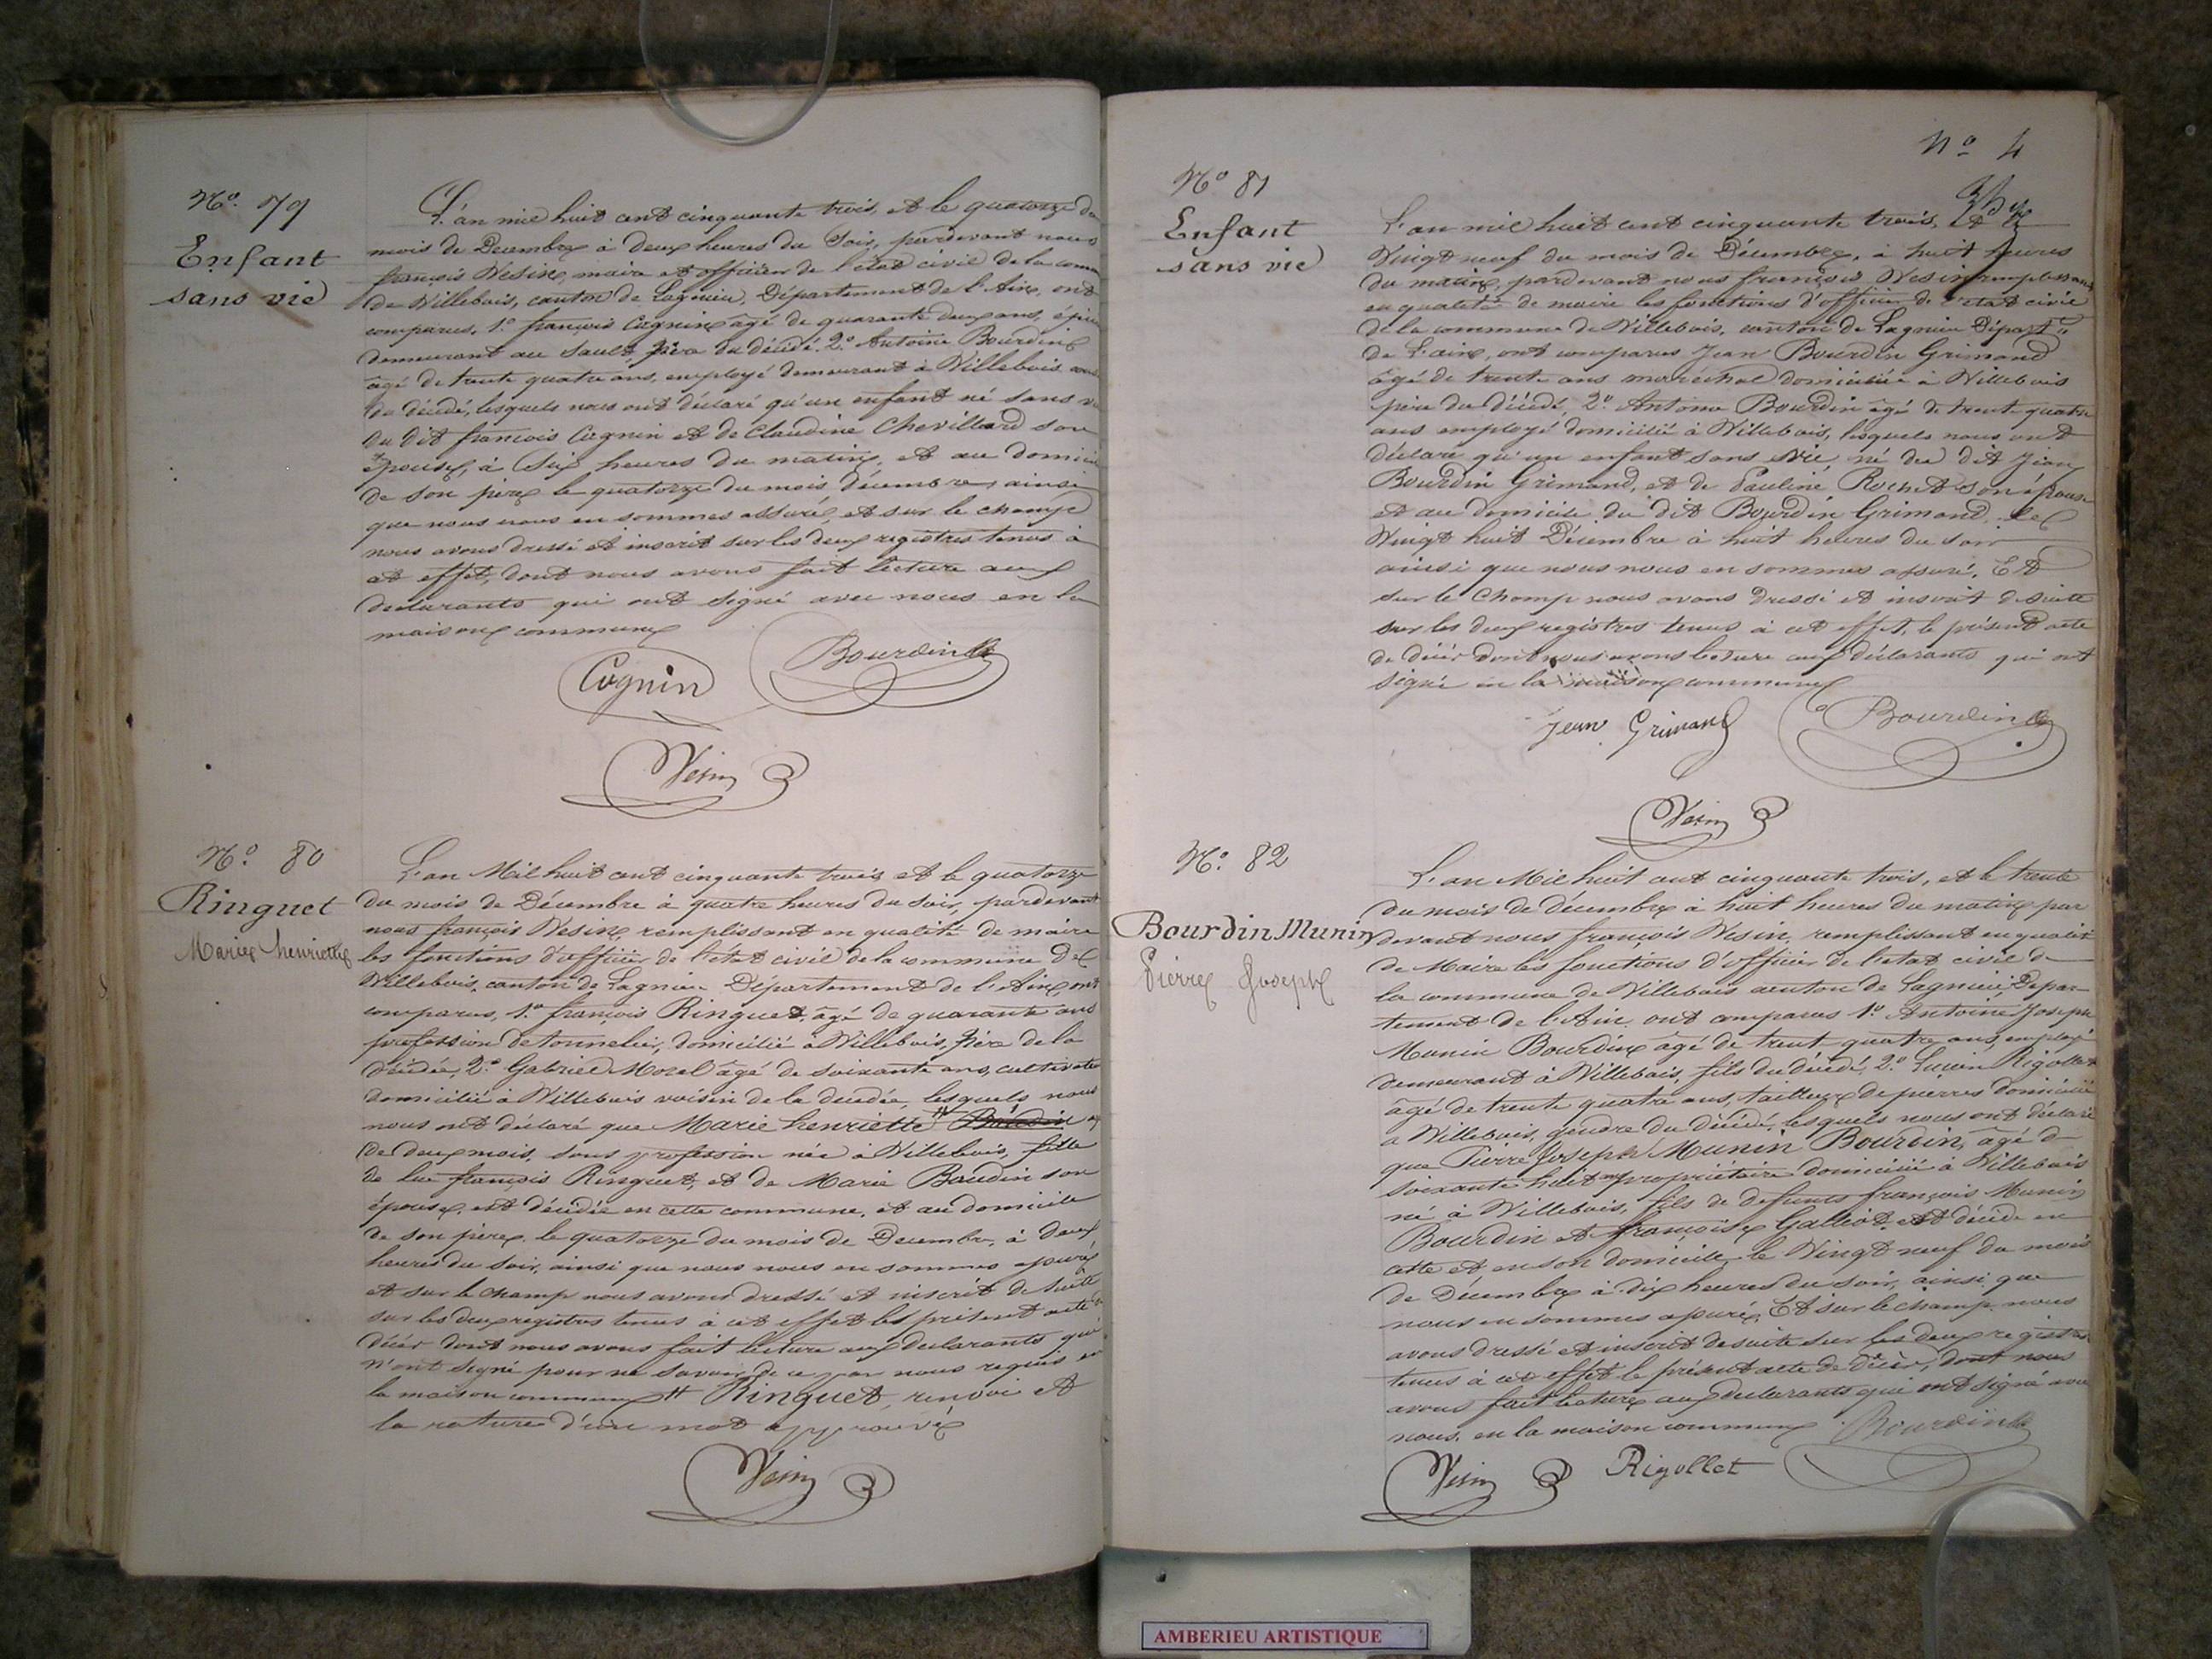 No. 79
Enfant
sans vie
L'an mil huit cent cinquante trois, et le quatorze du
mois de Decembre à deux heures du soir, pardevant nous
françois Vesin, maire et officier de l'état civil de la comm
de Villebois, canton de Lagnieu, Département de l'Ain, ont
comparus, 1o. françois Cognin âgé de quarante deux ans,
demeurant au Sault, père du décédé. 2o. Antoine Bourdin
âgé de trente quatre ans, employé demeurant à Villebois
du décédé, lesquels nous ont déclaré qu'un enfant né sans
du dit françois Cognin et de Claudine Chevillard son
épouse, à six heures du matin, et au domicile
de son père le quatorze du mois décembre, ainsi
que nous nous en sommes assuré, et sur le champ
nous avons dressé et inscrit sur les deux registres tenus à
cet effet, dont nous avons fait lecture aux
declarants qui ont signé avec nous en la
maison commune
Cognin Bourdin
Vesin
No. 80
Ringuet
Marie henriette
L'an Mil huit cent cinquante trois et le quatorze
du mois de Décembre à quatre heures du soir, pardevant
nous françois Vesin, remplissant en qualité de maire
les fonctions d'officier de l'état civil de la commune de
Villebois, canton de Lagnieu Département de l'Ain, ont
comparus, 1o. françois Ringuet, âgé de quarante ans
profession de tonnelier, domicilié à Villebois, père de la
décédée, 2o. Gabriel Morel âgé de soixante ans, cultivateur
domicilié à Villebois voisin de la décédée, lesquels nous
nous ont déclaré que Marie henriette # Baudin
de deux mois, sans profession née à Villebois, fille
de françois Ringuet, et de Marie Baudin son
épouse, est décédée en cette commune, et au domicile
de son père, le quatorze du mois de Decembre, à deux
heures du soir, ainsi que nous nous en sommes assuré
et sur le champ nous avons dressé et inscrit de suite
sur les deux registres tenus à cet effet le présent acte de
décès dont nous avons fait lecture aux declarants qui
n'ont signé pour ne savoir de ce par nous requis en
la maison commune # Ringuet, renvoi et
la rature d'un mot approuvé
Vesin
No 4
No 81
Enfant
sans vie
L'an mil huit cent cinquante trois, et le
Vingt neuf du mois de Décembre, à huit heures
du matin, pardevant nous françois Vesin remplissant
en qualité de maire les fonctions d'officier de l'état civil
de la commune de Villebois, canton de Lagnieu Départ.t
de l'ain, ont comparus Jean Bourdin Grimand
âgé de trente ans maréchal domicilié à Villebois
père du décédé, 2o. Antoine Bourdin âgé de trente quatre
ans employé domicilié à Villebois, lesquels nous ont
déclaré qu'un enfant sans vie né du dit Jean
Bourdin Grimand, et de Pauline Rochet son épouse
et au domicile du dit Bourdin Grimand le
Vingt huit Décembre à huit heures du soir
ainsi que nous nous en sommes assuré. Et
sur le champ nous avons dressé et inscrit de suite
sur les deux registres tenus à cet effet, le présent acte
de décès dont nous avons lecture aux déclarants qui ont
signé en la maison commune
Jean Grimand Bourdin
Vesin
No. 82
Bourdin Munin
Pierre Joseph
L'an Mil huit cent cinquante trois, et le trente
du mois de décembre à huit heures du matin par
devant nous françois Vesin, remplissant en qualité
de Maire les fonctions d'officier de l'état civil de
la commune de Villebois canton de Lagnieu, Depar-
tement de l'Ain, ont comparus 1o. Antoine Joseph
Munin Bourdin âgé de trente quatre ans, employé
demeurant à Villebois, fils du décédé, 2o. Lucien Rigollet
âgé de trente quatre ans, tailleur de pierres domicilié
a Villebois, gendre du décédé, lesquels nous ont déclaré
que Pierre Joseph Munin Bourdin, âgé de
soixante huit ans propriétaire domicilié à Villebois
né à Villebois, fils de defunts françois Munin
Bourdin et françoise Galliot est décédé en
cette et en son domicile, le Vingt neuf du mois
de Décembre à dix heures du soir, ainsi que
nous en sommes assuré, Et sur le champ nous
avons dressé et inscrit de suite sur les deux registres
tenus à cet effet le présent acte de décès, dont nous
avons fait lecture aux declarants qui ont signé avec
nous, en la maison commune Bourdin
Vesin Rigollet
AMBERIEU ARTISTIQUE